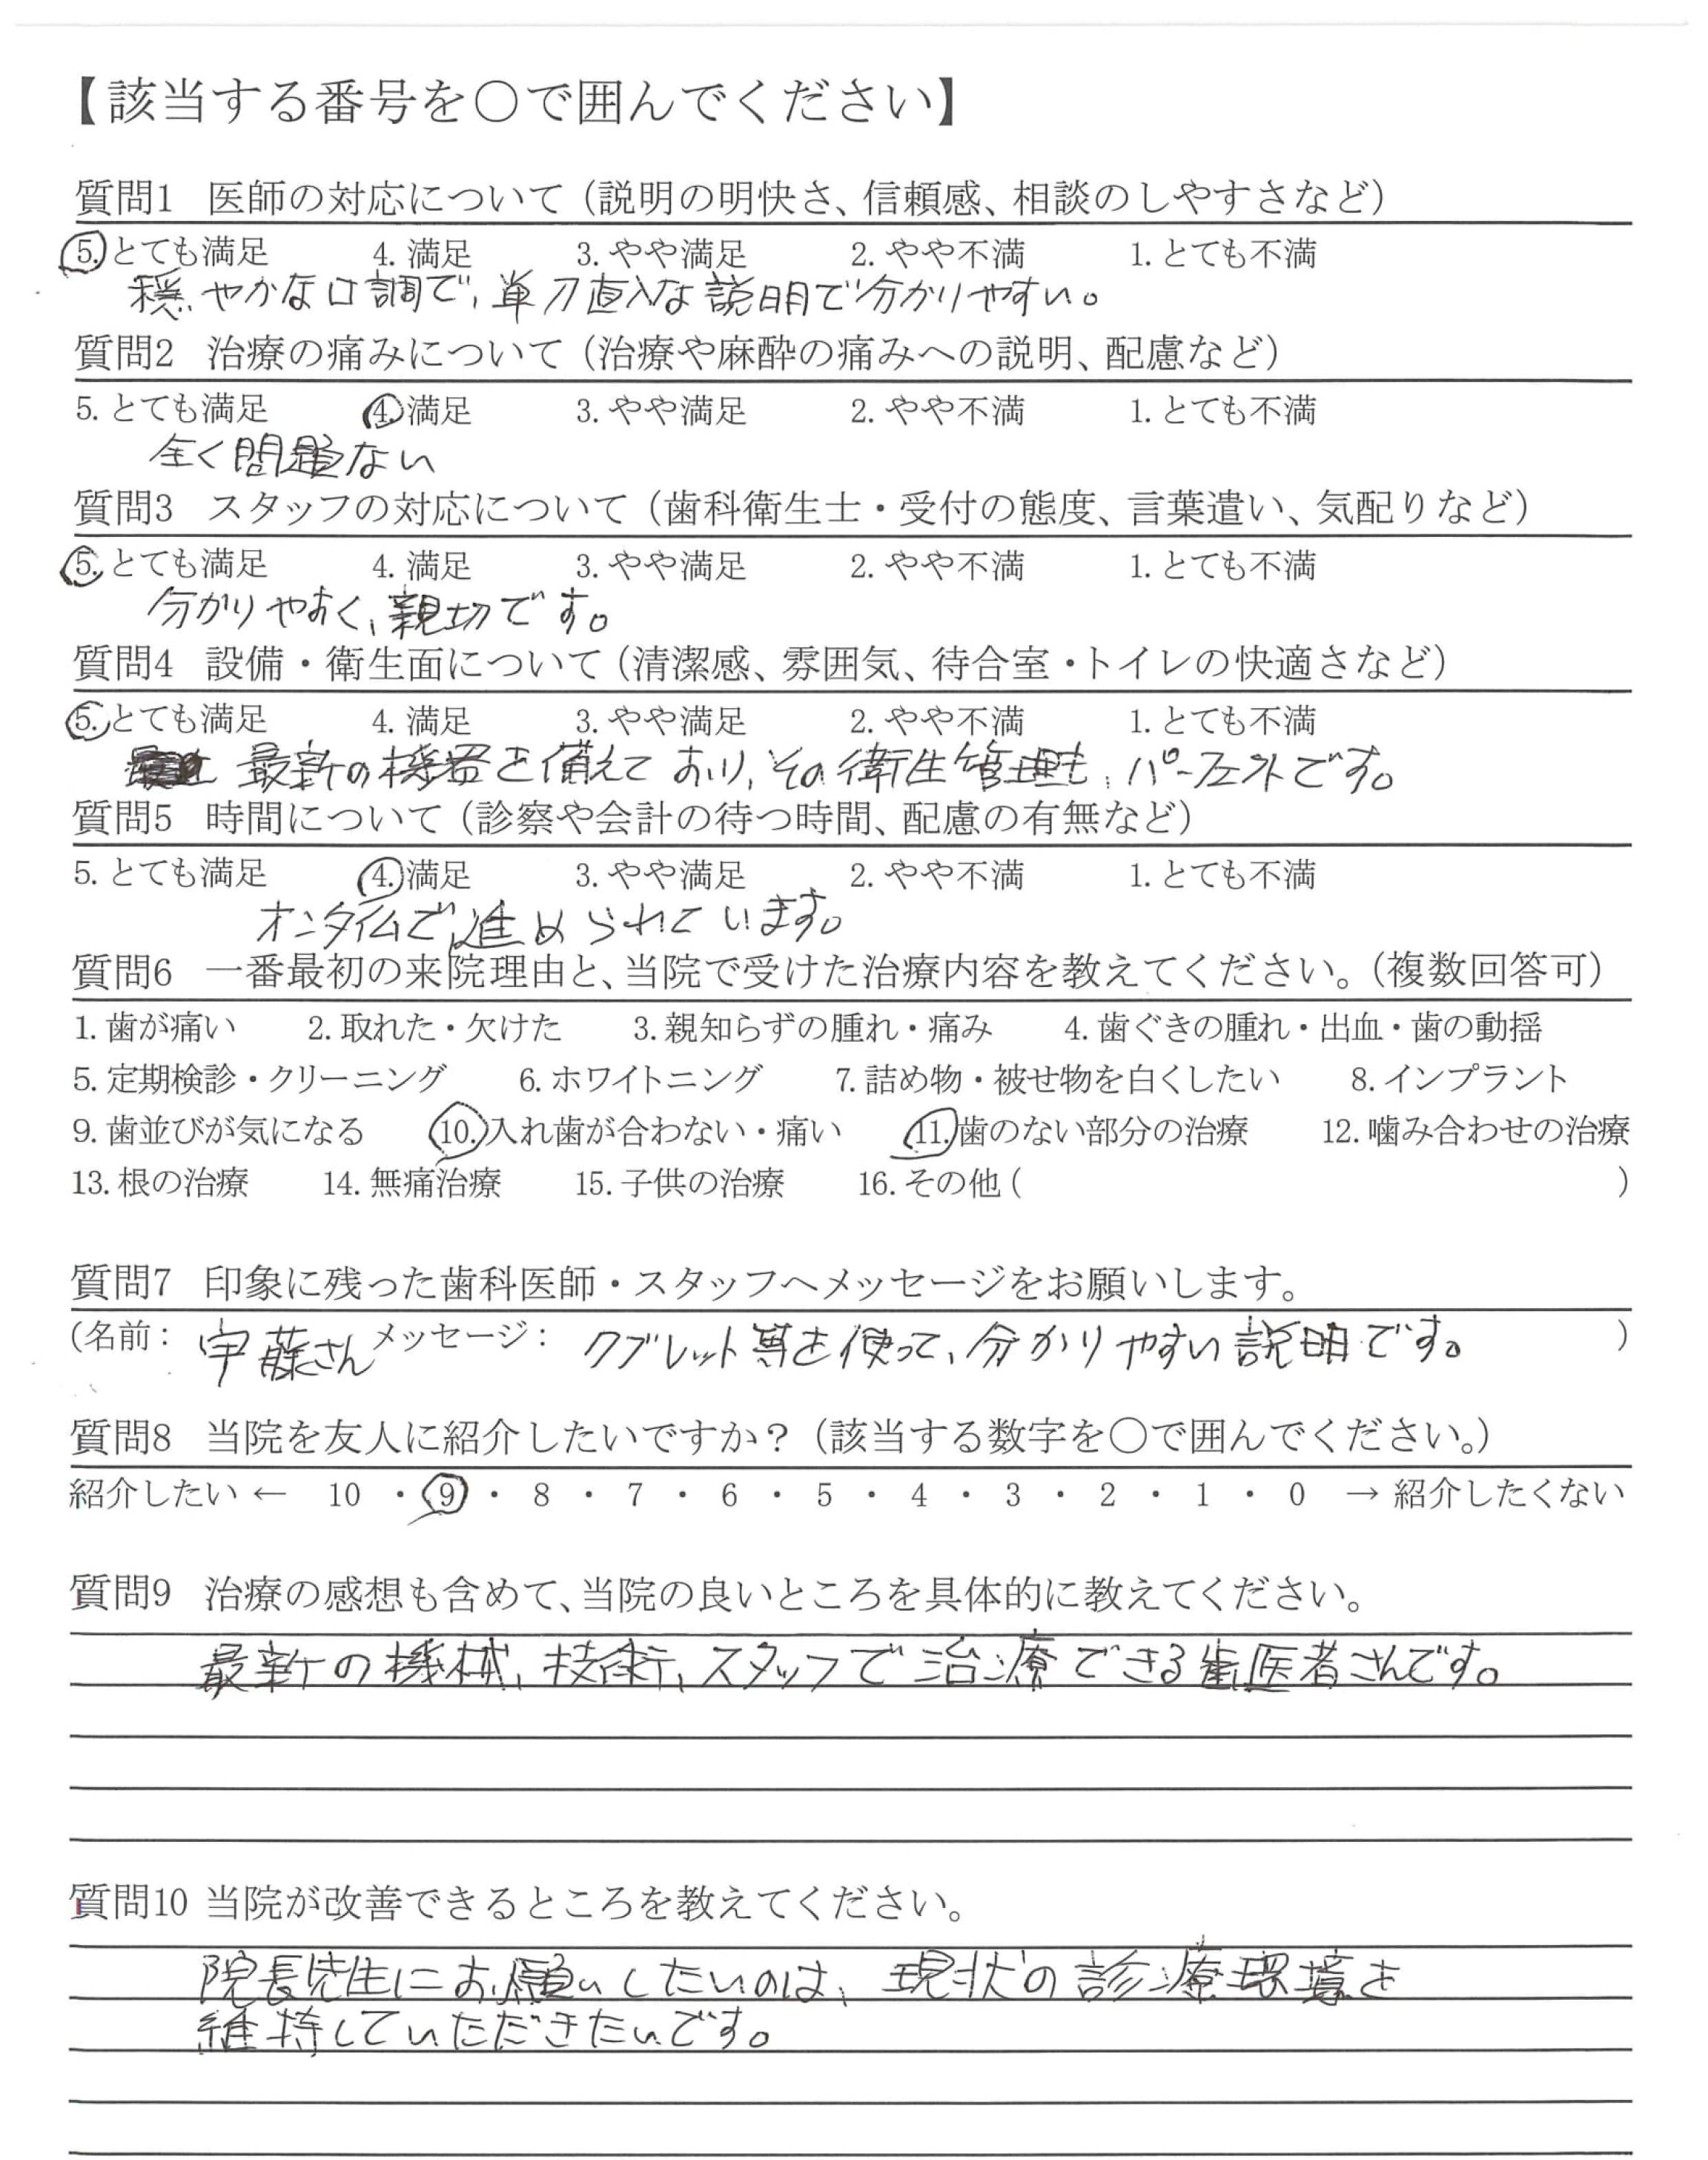 【該当する番号を○で囲んでください】
質問1 医師の対応について（説明の明快さ、信頼感、相談のしやすさなど）
5. とても満足 4. 満足 3. やや満足 2. やや不満 1. とても不満
穏やかな口調で、単刀直入な説明で分かりやすい。
質問2 治療の痛みについて（治療や麻酔の痛みへの説明、配慮など）
5. とても満足 4. 満足 3. やや満足 2. やや不満 1. とても不満
全く問題ない
質問3 スタッフの対応について（歯科衛生士・受付の態度、言葉遣い、気配りなど）
5. とても満足 4. 満足 3. やや満足 2. やや不満 1. とても不満
分かりやすく、親切です。
質問4 設備・衛生面について（清潔感、雰囲気、待合室・トイレの快適さなど）
5. とても満足 4. 満足 3. やや満足 2. やや不満 1. とても不満
最新の機器を備えており、その衛生管理も、パーフェクトです。
質問5 時間について（診察や会計の待つ時間、配慮の有無など）
5. とても満足 4. 満足 3. やや満足 2. やや不満 1. とても不満
オンタイムで進められています。
質問6 一番最初の来院理由と、当院で受けた治療内容を教えてください。（複数回答可）
1. 歯が痛い 2. 取れた・欠けた 3. 親知らずの腫れ・痛み 4. 歯ぐきの腫れ・出血・歯の動揺
5. 定期検診・クリーニング 6. ホワイトニング 7. 詰め物・被せ物を白くしたい 8. インプラント
9. 歯並びが気になる 10. 入れ歯が合わない・痛い 11. 歯のない部分の治療 12. 噛み合わせの治療
13. 根の治療 14. 無痛治療 15. 子供の治療 16. その他（ ）
質問7 印象に残った歯科医師・スタッフへメッセージをお願いします。
（名前： 宇藤さん メッセージ： タブレット等を使って、分かりやすい説明です。 ）
質問8 当院を友人に紹介したいですか？（該当する数字を○で囲んでください。）
紹介したい ← 10 ・ 9 ・ 8 ・ 7 ・ 6 ・ 5 ・ 4 ・ 3 ・ 2 ・ 1 ・ 0 → 紹介したくない
質問9 治療の感想も含めて、当院の良いところを具体的に教えてください。
最新の機械、技術、スタッフで治療できる歯医者さんです。
質問10 当院が改善できるところを教えてください。
院長先生にお願いしたいのは、現状の診療環境を
維持していただきたいです。